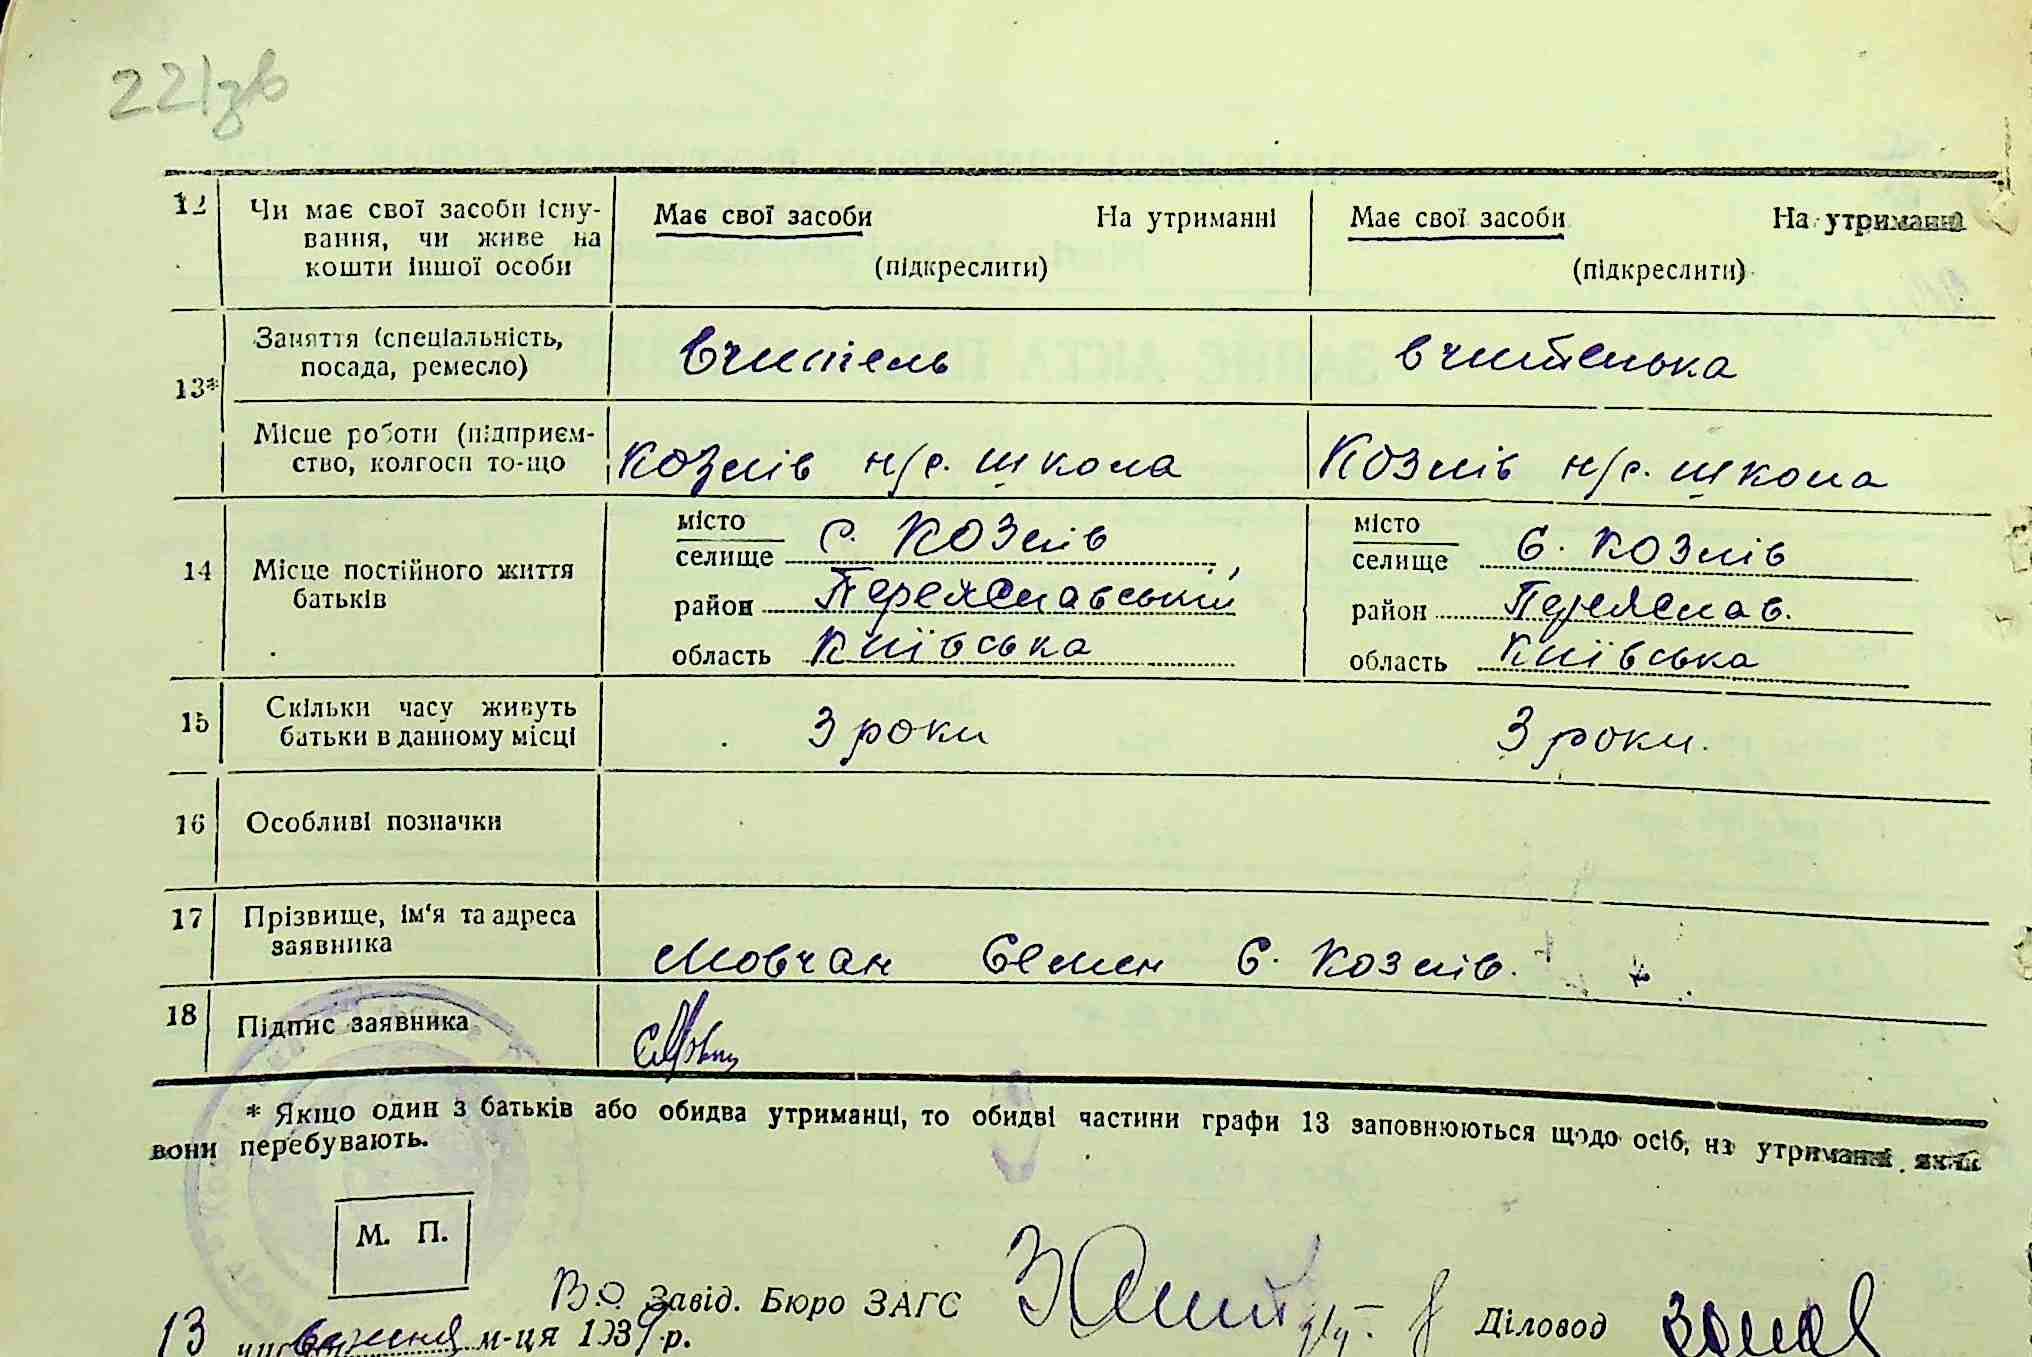 22|зв
12 Чи має свої засоби існу- Має свої засоби На утриманні Має свої засоби На утриманні
вання, чи живе на
кошти іншої особи (підкреслити) (підкреслити)
Заняття (спеціальність, вчитель вчителька
посада, ремесло)
13*
Місце роботи (підприєм- Козлів н/с. школа Козлів н/с. школа
ство, колгосп то-що
місто с. Козлів місто с. Козлів
селище селище
14 Місце постійного життя район Переяславський район Переяслав.
батьків
область Київська область Київська
15 Скільки часу живуть 3 роки 3 роки.
батьки в данному місці
16 Особливі позначки
17 Прізвище, ім'я та адреса
заявника Мовчан Семен с. Козлів.
18 Підпис заявника
* Якщо один з батьків або обидва утриманці, то обидві частини графи 13 заповнюються щодо осіб, на утриманні яких
вони перебувають.
М. П.
В.О. Завід. Бюро ЗАГС Діловод
13 вересня м-ця 1939 р.